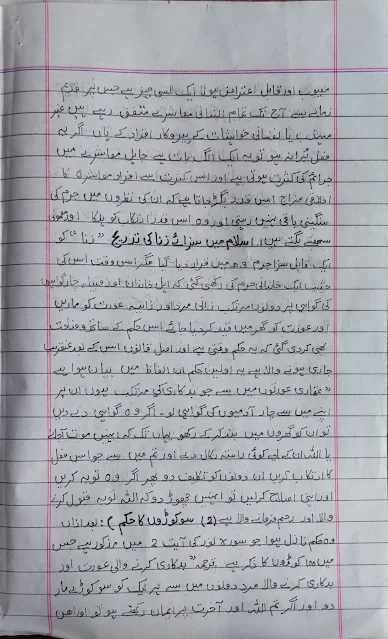 معیوب اور قابل اعتراض ہونا ایک ایسی چیز ہے جس پر قدیم
زمانے سے آج تک تمام انسانی معاشرے متفق رہے ہیں بجز
یا نفسانی خواہشات کے پیروکار افراد کے ہاں اگر یہ
فعل بُرا نہ ہو تو یہ ایک الگ بات ہے جاہل معاشرے میں
جرائم کی کثرت ہوتی ہے اور اس کثرت سے افراد معاشرہ کا
اخلاقی مزاج اس قدر بگڑ جاتا ہے کہ ان کی نظروں میں جرم کی
سنگینی باقی نہیں رہتی اور وہ اس قدر ارتکاب کو ہلکا اور معمولی
سمجھنے لگتے ہیں۔ اسلام میں سزائے زنا کی تدریج "زنا" کو
ایک قابل سزا جرم 3ھ میں قرار دیا گیا مگر اس وقت اس کی
حیثیت ایک خاندانی جرم کی رکھی گئی کہ اہل خاندان اور قبیلہ چار گواہوں
کی گواہی پر دونوں مرتکب زانی مرد اور زانیہ عورت کو ماریں
اور عورت کو گھر میں قید کر دیا جائے اس حکم کے ساتھ وضاحت
بھی کر دی گئی کہ یہ حکم وقتی ہے اور اصل قانون اس کے بعد عنقریب
جاری ہونے والا ہے یہ اولین حکم ان الفاظ میں بیان ہوا ہے
"تمہاری عورتوں میں سے جو بدکاری کی مرتکب ہوں ان پر
اپنے میں سے چار آدمیوں کی گواہی لو۔ اگر وہ گواہی دے دیں
تو ان کو گھروں میں بند کر کے رکھو یہاں تک کہ انہیں موت آجائے
یا اللہ ان کے لیے کوئی راستہ نکال دے اور تم میں سے جو اس فعل
کا ارتکاب کریں ان دونوں کو تکلیف دو پھر اگر وہ توبہ کریں
اور اپنی اصلاح کر لیں تو انہیں چھوڑ دو کہ اللہ توبہ قبول کرنے
والا اور رحم فرمانے والا ہے (2) سو کوڑوں کا حکم): بعد ازاں
وہ حکم نازل ہوا جو سورۃ نور کی آیت 2 میں مذکور ہے جس
میں 100 کوڑوں کا ذکر ہے ترجمہ "بدکاری کرنے والی عورت اور
بدکاری کرنے والا مرد دونوں میں سے ہر ایک کو سو کوڑے مار
دو اور اگر تم اللہ اور آخرت پر ایمان رکھتے ہو تو اور انھیں